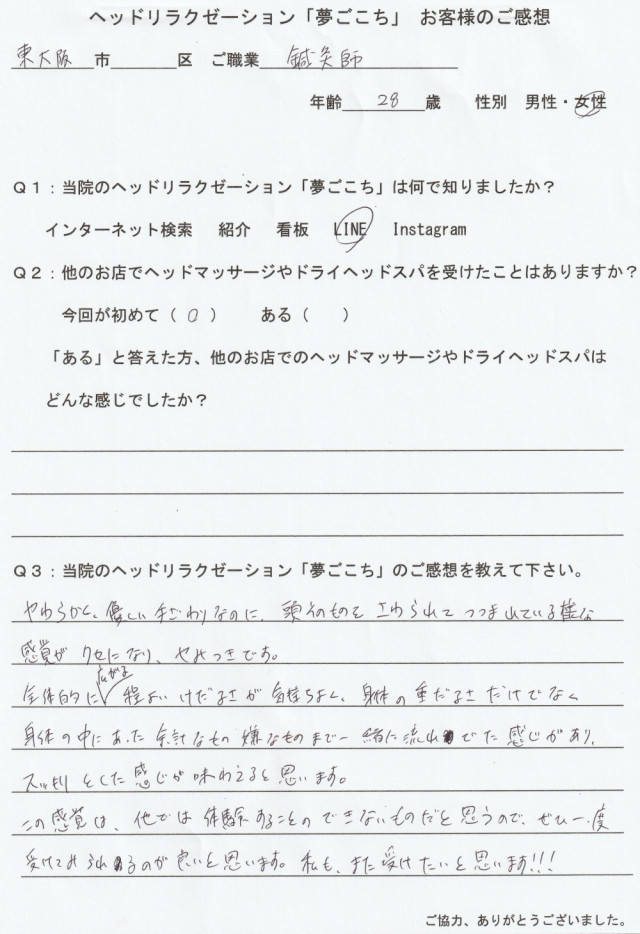 ヘッドリラクゼーション「夢ごこち」 お客様のご感想
東大阪 市 区 ご職業 鍼灸師
年齢 28 歳 性別 男性・女性
Q1:当院のヘッドリラクゼーション「夢ごこち」は何で知りましたか?
インターネット検索 紹介 看板 LINE Instagram
Q2:他のお店でヘッドマッサージやドライヘッドスパを受けたことはありますか?
今回が初めて( O ) ある( )
「ある」と答えた方、他のお店でのヘッドマッサージやドライヘッドスパは
どんな感じでしたか?
Q3:当院のヘッドリラクゼーション「夢ごこち」のご感想を教えて下さい。
やわらかく、優しい手ざわりなのに、頭そのものを さわられて つつまれている様な
感覚が クセになり、やみつきです。
広がる
全体的に 程よい けだるさが 気持ちよく、身体の重だるさ だけでなく
身体の中にあった 余計なもの 嫌なものまで一緒に流れでた 感じがあり、
スッキリ とした 感じが 味わえると 思います。
この感覚は、他では 体験することの できないものだと思うので、ぜひ一度
受けてみられるのが 良いと思います。私も、また 受けたいと 思います!!!
ご協力、ありがとうございました。